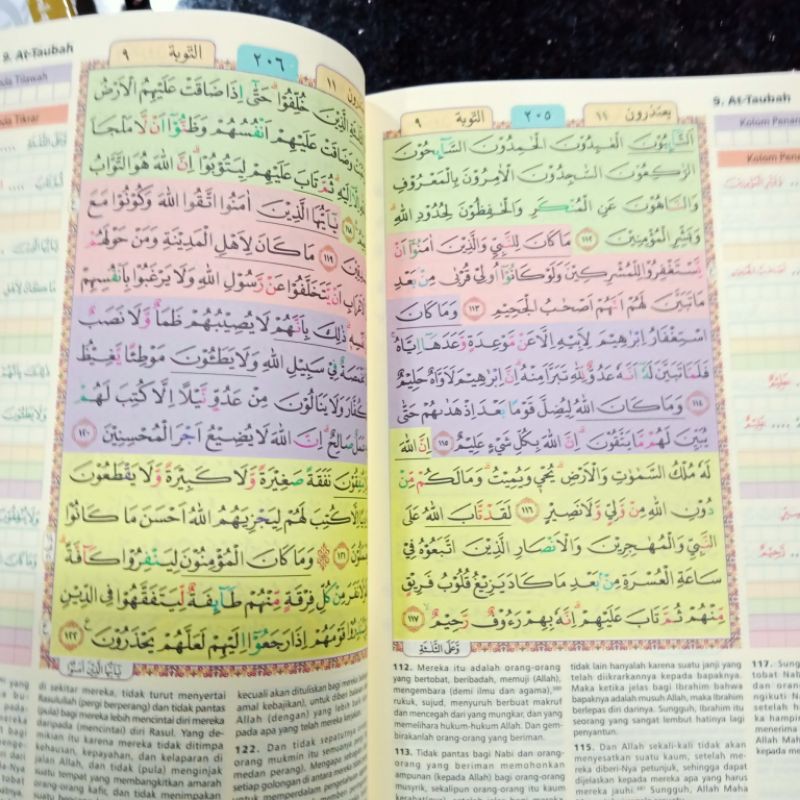 9. At-Taubah
يعتذرون ١١
٢٠٥
التوبة ٩
اَلتَّاۤىِٕبُوْنَ الْعٰبِدُوْنَ الْحٰمِدُوْنَ السَّاۤىِٕحُوْنَ
الرّٰكِعُوْنَ السّٰجِدُوْنَ الْاٰمِرُوْنَ بِالْمَعْرُوْفِ
وَالنَّاهُوْنَ عَنِ الْمُنْكَرِ وَالْحٰفِظُوْنَ لِحُدُوْدِ اللّٰهِ ۗ
وَبَشِّرِ الْمُؤْمِنِيْنَ ١١٢ مَا كَانَ لِلنَّبِيِّ وَالَّذِيْنَ اٰمَنُوْٓا اَنْ
يَّسْتَغْفِرُوْا لِلْمُشْرِكِيْنَ وَلَوْ كَانُوْٓا اُولِيْ قُرْبٰى مِنْۢ بَعْدِ
مَا تَبَيَّنَ لَهُمْ اَنَّهُمْ اَصْحٰبُ الْجَحِيْمِ ١١٣ وَمَا كَانَ
اسْتِغْفَارُ اِبْرٰهِيْمَ لِاَبِيْهِ اِلَّا عَنْ مَّوْعِدَةٍ وَّعَدَهَآ اِيَّاهُ ۚ
فَلَمَّا تَبَيَّنَ لَهٗٓ اَنَّهٗ عَدُوٌّ لِّلّٰهِ تَبَرَّاَ مِنْهُ ۗ اِنَّ اِبْرٰهِيْمَ لَاَوَّاهٌ حَلِيْمٌ
١١٤ وَمَا كَانَ اللّٰهُ لِيُضِلَّ قَوْمًاۢ بَعْدَ اِذْ هَدٰىهُمْ حَتّٰى
يُبَيِّنَ لَهُمْ مَّا يَتَّقُوْنَ ۗ اِنَّ اللّٰهَ بِكُلِّ شَيْءٍ عَلِيْمٌ ١١٥ اِنَّ اللّٰهَ
لَهٗ مُلْكُ السَّمٰوٰتِ وَالْاَرْضِ ۗ يُحْيٖ وَيُمِيْتُ ۗ وَمَا لَكُمْ مِّنْ
دُوْنِ اللّٰهِ مِنْ وَّلِيٍّ وَّلَا نَصِيْرٍ ١١٦ لَقَدْ تَّابَ اللّٰهُ عَلَى
النَّبِيِّ وَالْمُهٰجِرِيْنَ وَالْاَنْصَارِ الَّذِيْنَ اتَّبَعُوْهُ فِيْ
سَاعَةِ الْعُسْرَةِ مِنْۢ بَعْدِ مَا كَادَ يَزِيْغُ قُلُوْبُ فَرِيْقٍ
مِّنْهُمْ ثُمَّ تَابَ عَلَيْهِمْ ۗ اِنَّهٗ بِهِمْ رَءُوْفٌ رَّحِيْمٌ ١١٧
وَعَلَى الثَّلٰثَةِ
112. Mereka itu adalah orang-orang
yang bertobat, beribadah, memuji (Allah),
mengembara (demi ilmu dan agama),
rukuk, sujud, menyuruh berbuat makruf
dan mencegah dari yang mungkar, dan yang
memelihara hukum-hukum Allah. Dan gem-
birakanlah orang-orang yang beriman.
113. Tidak pantas bagi Nabi dan orang-
orang yang beriman memohonkan
ampunan (kepada Allah) bagi orang-orang
musyrik, sekalipun orang-orang itu kaum
tidak lain hanyalah karena suatu janji yang
telah diikrarkannya kepada bapaknya.
Maka ketika jelas bagi Ibrahim bahwa
bapaknya adalah musuh Allah, maka Ibrahim
berlepas diri darinya. Sungguh, Ibrahim itu
seorang yang sangat lembut hatinya lagi
penyantun.
115. Dan Allah sekali-kali tidak akan
menyesatkan suatu kaum, setelah me-
reka diberi-Nya petunjuk, sehingga dapat
dijelaskan kepada mereka apa yang harus
mereka jauhi. Sungguh, Allah Maha
117.
9. At-Taubah
التوبة ٩
٢٠٦
١١
خُلِّفُوْا ۗ حَتّٰٓى اِذَا ضَاقَتْ عَلَيْهِمُ الْاَرْضُ
وَضَاقَتْ عَلَيْهِمْ اَنْفُسُهُمْ وَظَنُّوْٓا اَنْ لَّا مَلْجَاَ
اِلَّآ اِلَيْهِ ۗ ثُمَّ تَابَ عَلَيْهِمْ لِيَتُوْبُوْا ۗ اِنَّ اللّٰهَ هُوَ التَّوَّابُ
١١٨ يٰٓاَيُّهَا الَّذِيْنَ اٰمَنُوا اتَّقُوا اللّٰهَ وَكُوْنُوْا مَعَ
١١٩ مَا كَانَ لِاَهْلِ الْمَدِيْنَةِ وَمَنْ حَوْلَهُمْ
اَنْ يَّتَخَلَّفُوْا عَنْ رَّسُوْلِ اللّٰهِ وَلَا يَرْغَبُوْا بِاَنْفُسِهِمْ
ذٰلِكَ بِاَنَّهُمْ لَا يُصِيْبُهُمْ ظَمَاٌ وَّلَا نَصَبٌ
فِيْ سَبِيْلِ اللّٰهِ وَلَا يَطَـُٔوْنَ مَوْطِئًا يَّغِيْظُ
وَلَا يَنَالُوْنَ مِنْ عَدُوٍّ نَّيْلًا اِلَّا كُتِبَ لَهُمْ
صَالِحٌ ۗ اِنَّ اللّٰهَ لَا يُضِيْعُ اَجْرَ الْمُحْسِنِيْنَ ١٢٠
نَفَقَةً صَغِيْرَةً وَّلَا كَبِيْرَةً وَّلَا يَقْطَعُوْنَ
اِلَّا كُتِبَ لَهُمْ لِيَجْزِيَهُمُ اللّٰهُ اَحْسَنَ مَا كَانُوْا
١٢١ وَمَا كَانَ الْمُؤْمِنُوْنَ لِيَنْفِرُوْا كَاۤفَّةً ۗ
نَفَرَ مِنْ كُلِّ فِرْقَةٍ مِّنْهُمْ طَاۤىِٕفَةٌ لِّيَتَفَقَّهُوْا فِى الدِّيْنِ
قَوْمَهُمْ اِذَا رَجَعُوْٓا اِلَيْهِمْ لَعَلَّهُمْ يَحْذَرُوْنَ ١٢٢
يٰٓاَيُّهَا الَّذِيْنَ اٰمَنُوْا
di sekitar mereka, tidak turut menyertai
Rasulullah (pergi berperang) dan tidak pantas
(pula) bagi mereka lebih mencintai diri mereka
daripada (mencintai) diri Rasul. Yang de-
mikian itu karena mereka tidak ditimpa
kehausan, kepayahan, dan kelaparan di
jalan Allah, dan tidak (pula) menginjak
suatu tempat yang membangkitkan amarah
orang-orang kafir, dan tidak menimpakan
kecuali akan dituliskan bagi mereka
amal kebajikan), untuk diberi balasan
Allah (dengan) yang lebih baik
pada apa yang telah mereka kerjakan.
122. Dan tidak sepatutnya
orang mukmin itu semuanya
medan perang). Mengapa
setiap golongan di antara mereka
untuk memperdalam pengetahuan